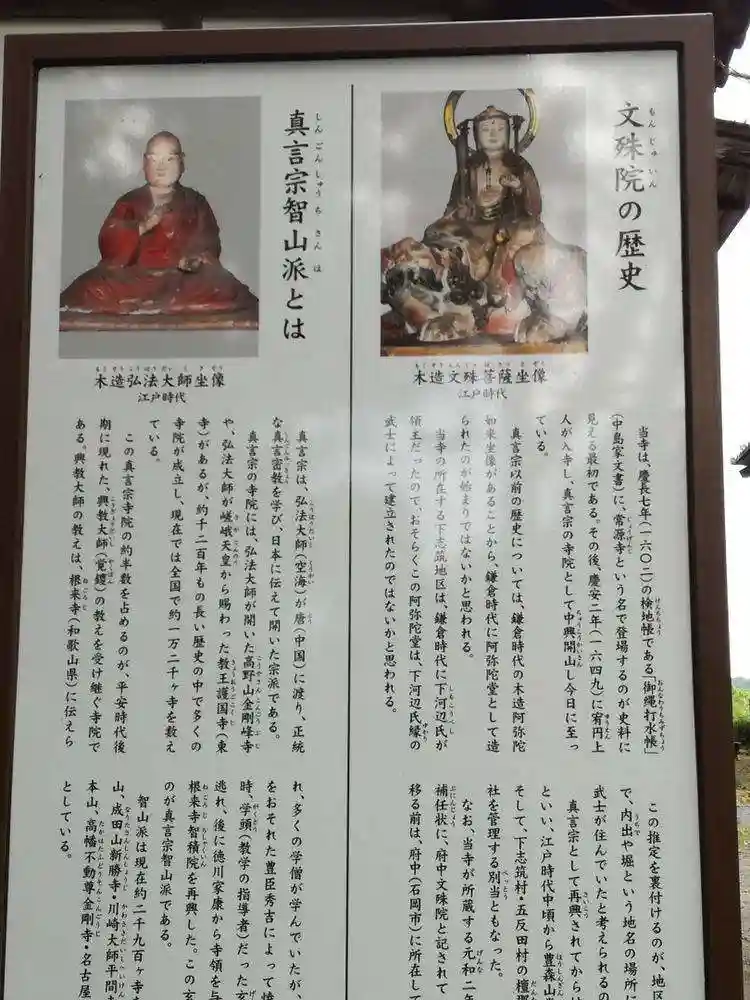 文殊院の歴史
もんじゅいん
木造文殊菩薩坐像
江戸時代
当寺は、慶長七年(一六〇二)の検地帳である「御縄打水帳」
(中島家文書)に、常源寺という名で登場するのが史料に
見える最初である。その後、慶安二年(一六四九)に宥円上
人が入寺し、真言宗の寺院として中興開山し今日に至っ
ている。
真言宗以前の歴史については、鎌倉時代の木造阿弥陀
如来坐像があることから、鎌倉時代に阿弥陀堂として造
られたのが始まりではないかと思われる。
当寺の所在する下志筑地区は、鎌倉時代に下河辺氏が
領主だったので、おそらくこの阿弥陀堂は、下河辺氏縁の
武士によって建立されたのではないかと思われる。
この推定を裏付けるのが、地区
で、内出や堀という地名の場所に
武士が住んでいたと考えられるの
真言宗として再興されてからは
といい、江戸時代中頃から豊森山
そして、下志筑村・五反田村の檀那
社を管理する別当ともなった。
なお、当寺が所蔵する元和二年
補任状に、府中文殊院と記されて
移る前は、府中(石岡市)に所在して
真言宗智山派とは
しんごんしゅうちさんは
木造弘法大師坐像
江戸時代
真言宗は、弘法大師(空海)が唐(中国)に渡り、正統
な真言密教を学び、日本に伝えて開いた宗派である。
真言宗の寺院には、弘法大師が開いた高野山金剛峰寺
や、弘法大師が嵯峨天皇から賜わった教王護国寺(東
寺)があるが、約千二百年もの長い歴史の中で多くの
寺院が成立し、現在では全国で約一万二千ヶ寺を数え
ている。
この真言宗寺院の約半数を占めるのが、平安時代後
期に現れた、興教大師(覚鑁)の教えを受け継ぐ寺院で
ある。興教大師の教えは、根来寺(和歌山県)に伝えら
れ、多くの学僧が学んでいたが、
をおそれた豊臣秀吉によって焼
時、学頭(教学の指導者)だった玄
逃れ、後に徳川家康から寺領を与
根来寺智積院を再興した。この玄
のが真言宗智山派である。
智山派は現在約二千九百ヶ寺
山、成田山新勝寺・川崎大師平間
本山、高幡不動尊金剛寺・名古屋
としている。